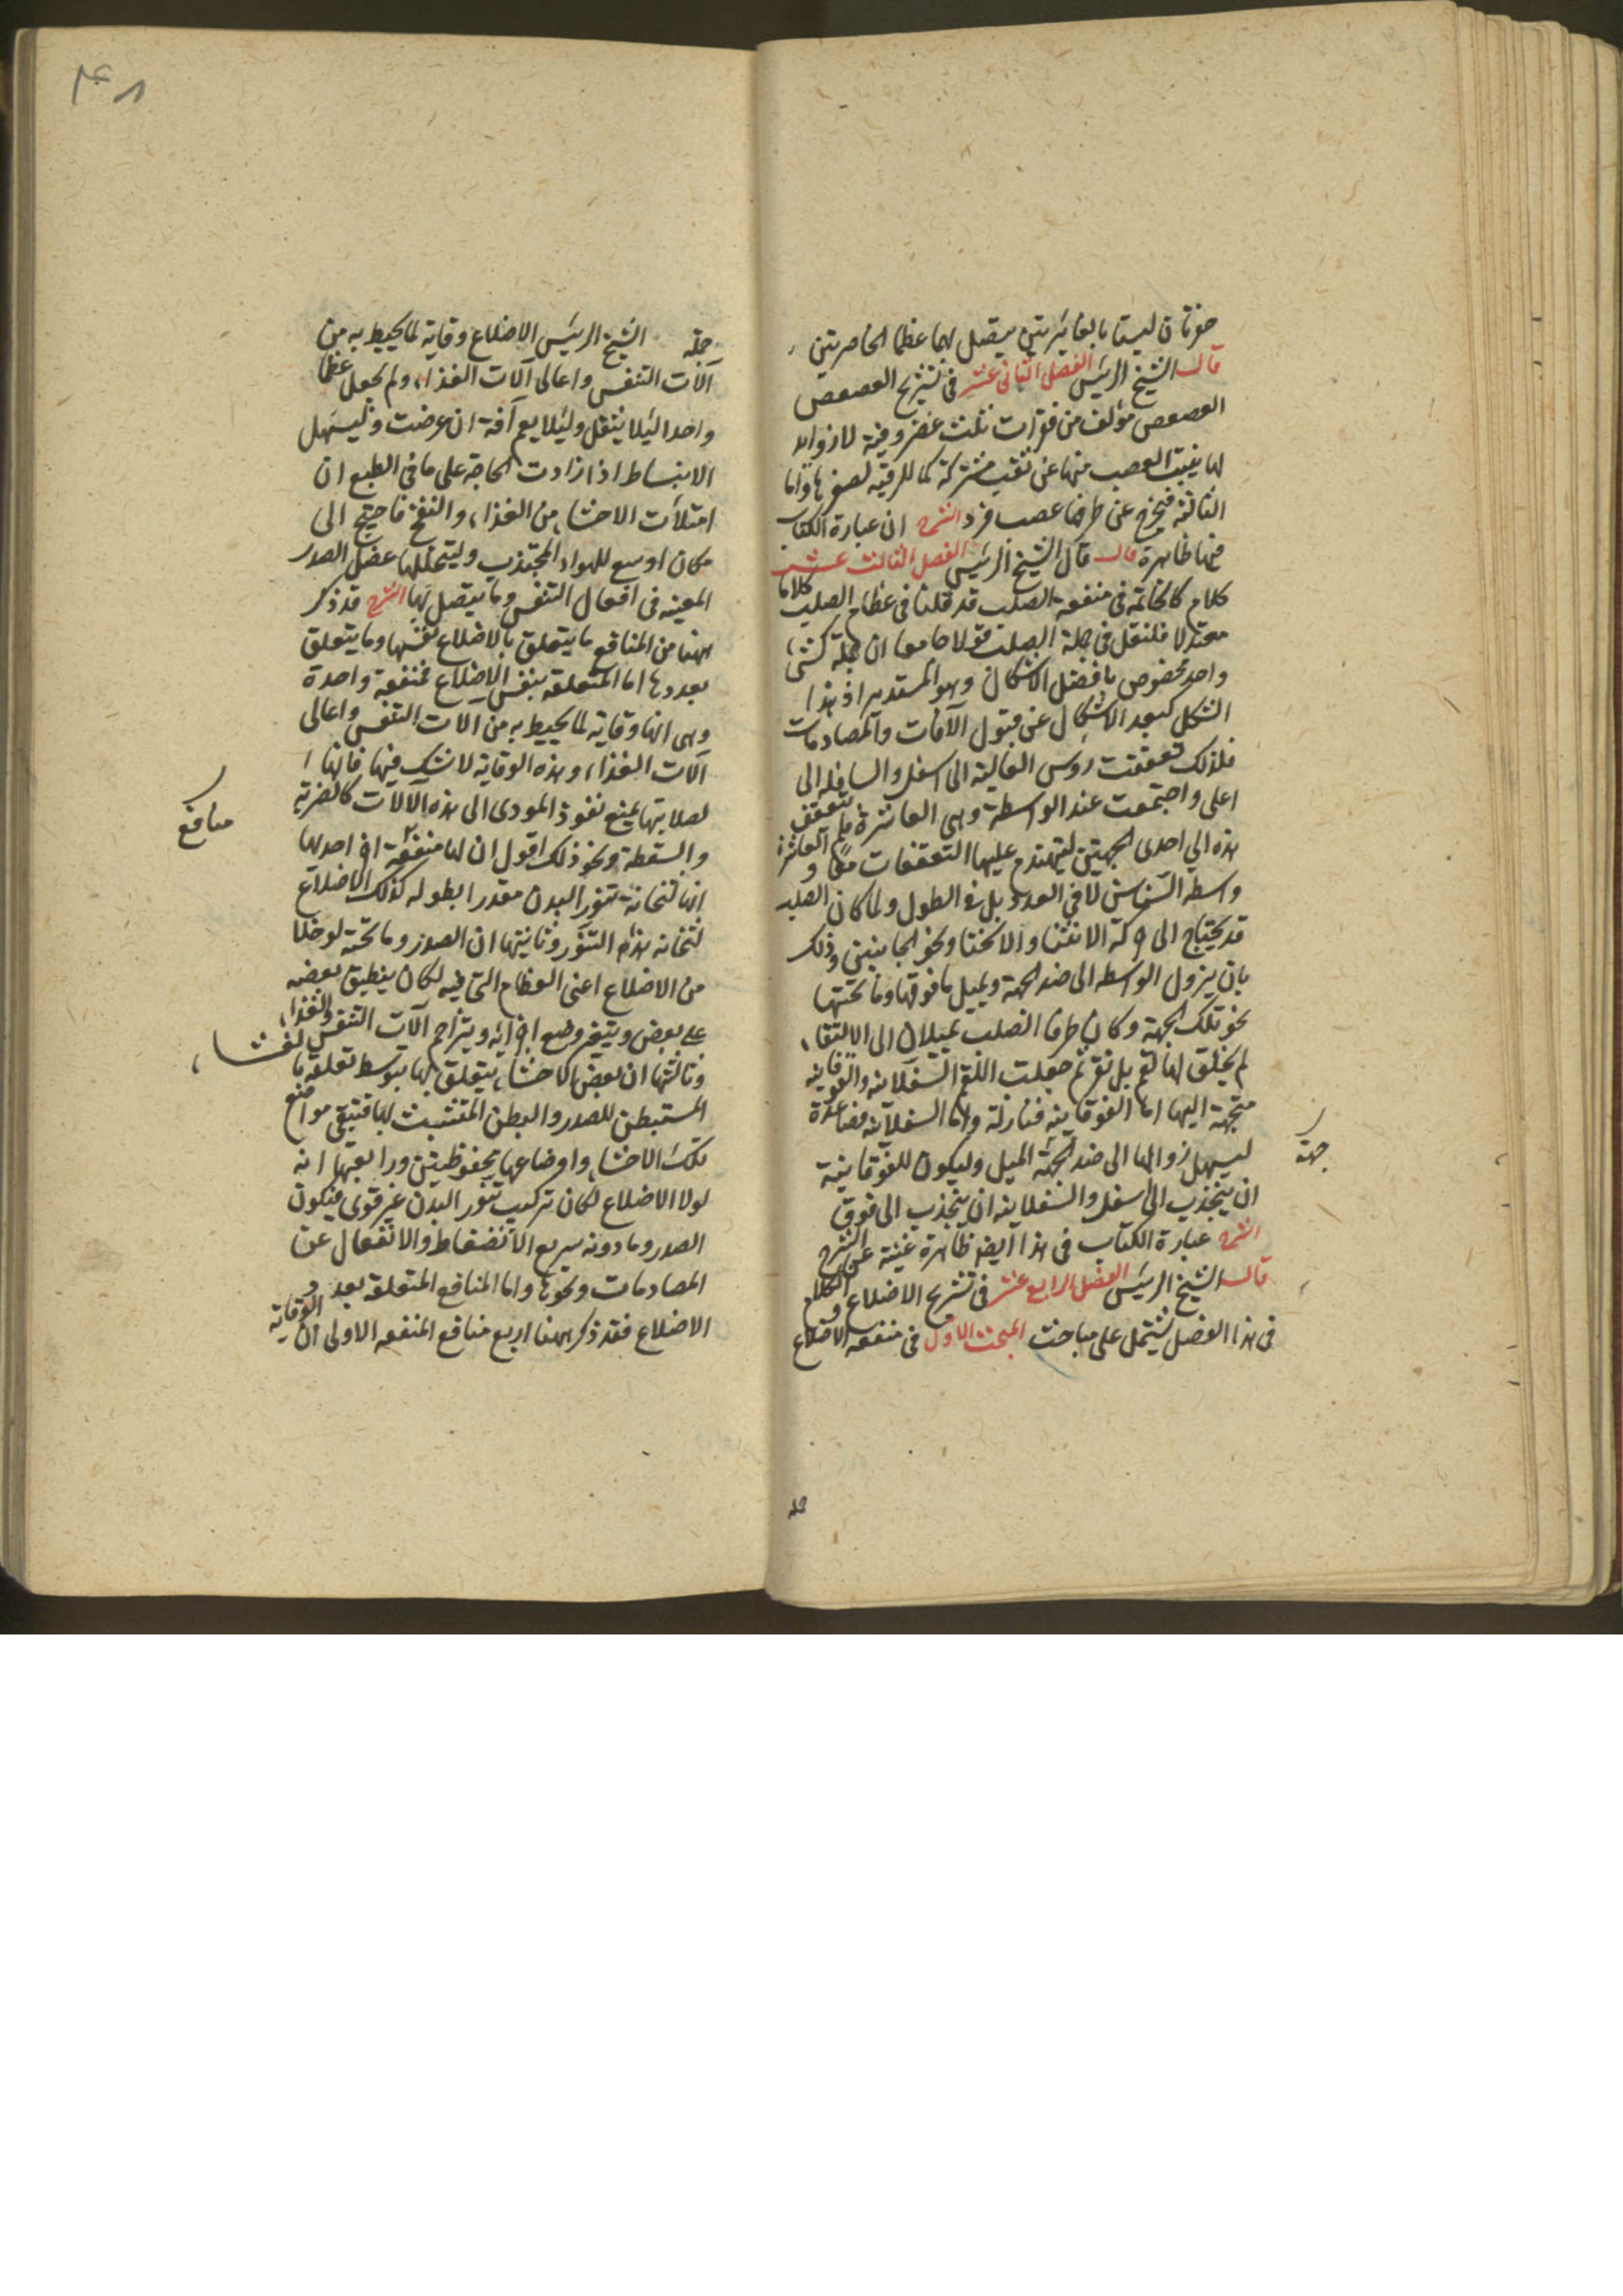 حفرتان ليستا بالغائرتين يتصل بهما عظما الخاصرتين
قال الشيخ الرئيس الفصل الثانى عشر فى تشريح العصعص
العصعص مؤلف من فقرات ثلث غضروفية لا زوائد
لها ينبت العصب منها عن ثقب مشتركة كما للرقبة لصغرها واما
الثالثة فيخرج عن طرفها عصب فرد الشرح ان عبارة الكتاب
فيها ظاهرة قال قال الشيخ الرئيس الفصل الثالث عشر
كلام كالخاتمة فى منفعة الصلب قد قلنا فى عظام الصلب كلاما
معتدلا فلنقل فى جملة الصلب قولا جامعا ان جملة كشئ
واحد مخصوص بافضل الاشكال وهو المستدير اذ هذا
الشكل ابعد الاشكال عن قبول الآفات والمصادمات
فلذلك تعقفت روس العالية الى اسفل والسافلة الى
اعلى واجتمعت عند الواسطة وهى العاشرة ولم تتعقف
هذه الى احدى الجهتين ليتهندم عليها التعقفات معا والعاشرة
واسطة السناسن لا فى العدد بل فى الطول ولما كان الصلب
قد يحتاج الى حركة الانثنا والانحنا ونحو الجانبين وذلك
بان يزول الواسطه الى ضد الجهة ويميل ما فوقها وما تحتها
نحو تلك الجهة وكان طرفا الصلب يميلان الى الالتقاء
لم يخلق لها لقم بل نقر ثم جعلت اللقم السفلانيه والفوقانيه
متجهة اليها اما الفوقانيه فنازلة واما السفلانيه فصاعدة
ليسهل زوالها الى ضد الجهة الميل وليكون للفوقانية
ان ينجذب الى اسفل والسفلانيه ان ينجذب الى فوق
الشرح عبارة الكتاب فى هذا ايضا ظاهرة غنية عن الشرح
قال الشيخ الرئيس الفصل الرابع عشر فى تشريح الاضلاع والكلام
فى هذا الفصل يشتمل على مباحث المبحث الاول فى منفعه الاضلاع
جهة
جمله الشيخ الرئيس الاضلاع وقاية لما يحيط به من
آلات التنفس واعالى آلات الغذاء ولم يجعل عظما
واحدا ليلا يثقل وليلا يعم آفة ان عرضت وليسهل
الانبساط اذا زادت الحاجة على ما فى الطبع ان
امتلأت الاحشاء من الغذاء والنفخ فاحتيج الى
مكان اوسع للهواء المجتذب وليتخللها عضل الصدر
المعينه فى افعال التنفس وما يتصل بها الشرح قد ذكر
ههنا من المنافع ما يتعلق بالاضلاع نفسها وما يتعلق
بعددها اما المتعلقه بنفس الاضلاع فمنفعة واحدة
وهى انها وقاية لما يحيط به من آلات التنفس واعالى
آلات الغذاء وهذه الوقاية لا شك فيها فانها
لصلابتها يمنع نفوذ المودى الى هذه الآلات كالضربة
والسقطة ونحو ذلك اقول ان لها منفعة اخر احدها
انها لتخانة تنور البدن مقدر ابطوله كذلك الاضلاع
لتخانة هذا التنور وثانيتها ان الصدر وما تحته لو خلا
من الاضلاع اعنى العظام التى فيه لكان ينطبق بعضه
على بعض ويتغير وضع اجزائه ويتزاحم آلات التنفس والغذاء
وثالثتها ان بعض الاحشاء يتعلق بها بتوسط تعلقه بالغشاء
المستبطن للصدر والبطن المتشبث بها فتبقى مواضع
تلك الاحشاء واوضاعها محفوظتين ورابعتها انه
لولا الاضلاع لكان تركيب تنور البدن غير قوى فيكون
الصدر وما دونه سريع الانضغاط والانفعال عن
المصادمات ونحوها واما المنافع المتعلقه بعدد
الاضلاع فقد ذكر ههنا اربع منافع المنفعه الاولى ان الوقاية
منافع